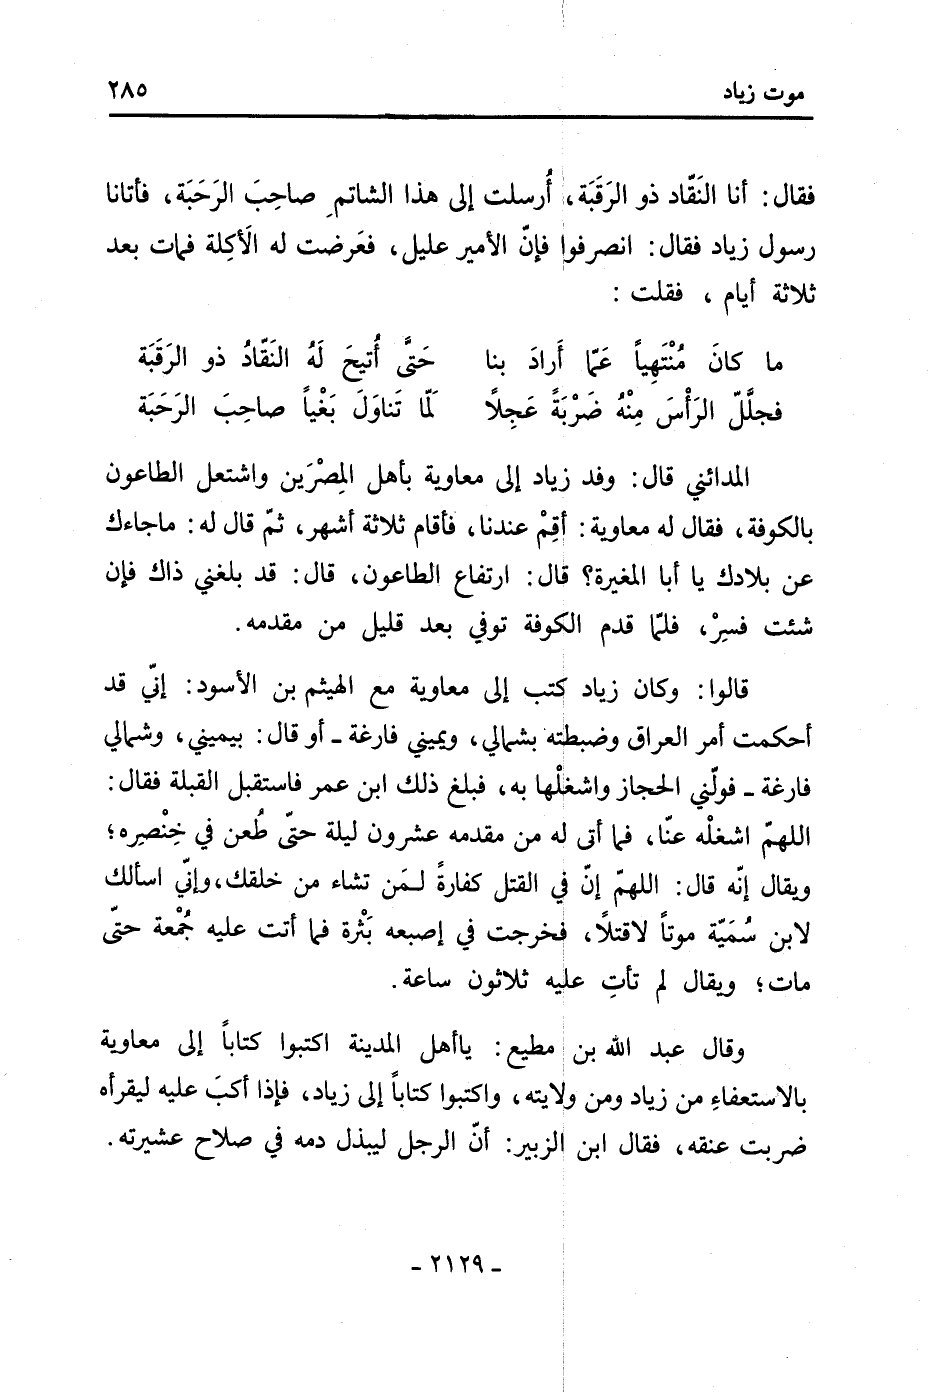 موت زياد ٢٨٥
فقال: أنا النَقّاد ذو الرَقَبَة، أُرسلت إلى هذا الشاتم صاحِبَ الرَحَبَة، فأتانا
رسول زياد فقال: انصرفوا فإنّ الأمير عليل، فعَرضت له الَأكِلة فمات بعد
ثلاثة أيام ، فقلت :
ما كانَ مُنْتَهِياً عَمّا أَرادَ بنا حَتَّى أُتيحَ لَهُ النَقّادُ ذو الرَقَبَة
فجلَّلّ الرَأْسَ مِنْهُ ضَرْبَةً عَجِلاً لَمّا تَناوَلَ بَغْياً صاحِبَ الرَحَبَة
المدائني قال: وفد زياد إلى معاوية بأهل المِصْرَين واشتعل الطاعون
بالكوفة، فقال له معاوية: أقِمْ عندنا، فأقام ثلاثة أشهر، ثمّ قال له: ماجاءك
عن بلادك يا أبا المغيرة؟ قال: ارتفاع الطاعون، قال: قد بلغني ذاك فإن
شئت فسِرْ، فلمّا قدم الكوفة توفي بعد قليل من مقدمه.
قالوا: وكان زياد كتب إلى معاوية مع الهيثم بن الأسود: إنّي قد
أحكمت أمر العراق وضبطته بشمالي، ويميني فارغة ـ أو قال: بيميني، وشمالي
فارغة ـ فولّني الحجاز واشغلْها به، فبلغ ذلك ابن عمر فاستقبل القبلة فقال:
اللهمّ اشغلْه عنّا، فما أتى له من مقدمه عشرون ليلة حتّى طُعن في خِنْصِره؛
ويقال إنّه قال: اللهمّ إنّ في القتل كفارةً لـمَن تشاء من خلقك،وإنّي اسألك
لابن سُمَيّة موتاً لاقتلًا، فخرجت في إصبعه بَثْرة فما أتت عليه جُمْعة حتّى
مات؛ ويقال لم تأتِ عليه ثلاثون ساعة.
وقال عبد الله بن مطيع: ياأهل المدينة اكتبوا كتاباً إلى معاوية
بالاستعفاءِ من زياد ومن ولايته، واكتبوا كتاباً إلى زياد، فإذا أكبَ عليه ليقرأه
ضربت عنقه، فقال ابن الزبير: أنّ الرجل ليبذل دمه في صلاح عشيرته.
ـ ٢١٢٩ ـ